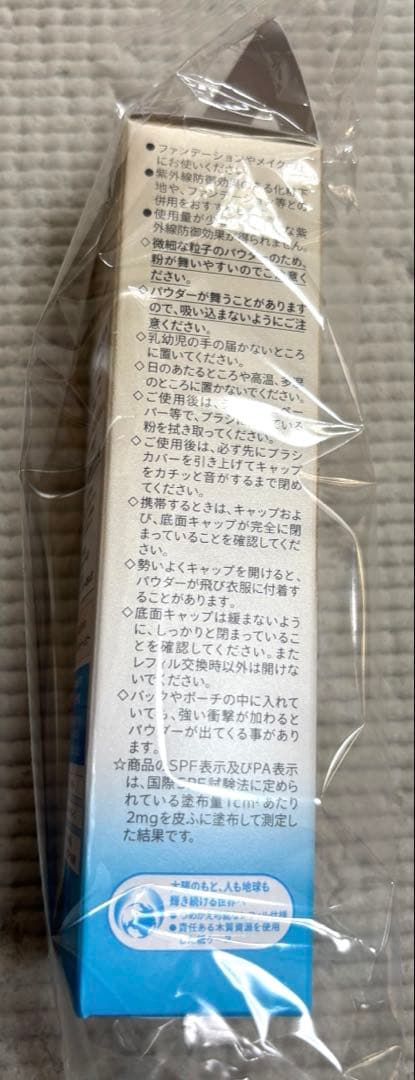 ●ファンデーションやメイク
にお使いくだ
●紫外線防御効
地や、ファンデ
併用をおす
●使用量が
外線防御効果が得られません。
◇微細な粒子のパウダーのため、
粉が舞いやすいのでご
ださい。
◇パウダーが舞うことがあります
ので、吸い込まないようにご注
意ください。
◇乳幼児の手の届かないところ
に置いてください。
◇日のあたるところや高温、多湿
のところに置かないでください。
◇ご使用後は、
パー等で、ブラシに
粉を拭き取ってください。
◇ご使用後は、必ず先にブラシ
カバーを引き上げてキャップ
をカチッと音がするまで閉め
てください。
◇携帯するときは、キャップおよ
び、底面キャップが完全に閉
まっていることを確認してくだ
さい。
◇勢いよくキャップを開けると、
パウダーが飛び衣服に付着す
ることがあります。
◇底面キャップは緩まないよう
に、しっかりと閉まっているこ
とを確認してください。また
レフィル交換時以外は開けな
いでください。
◇バッグやポーチの中に入れて
いても、強い衝撃が加わると
パウダーが出てくる事があり
ます。
☆商品のSPF表示及びPA表示
は、国際SPF試験法に定めら
れている塗布量1cm²あたり
2mgを皮ふに塗布して測定し
た結果です。
太陽のもと、人も地球も
輝き続ける世界へ
●責任ある木質資源を使用